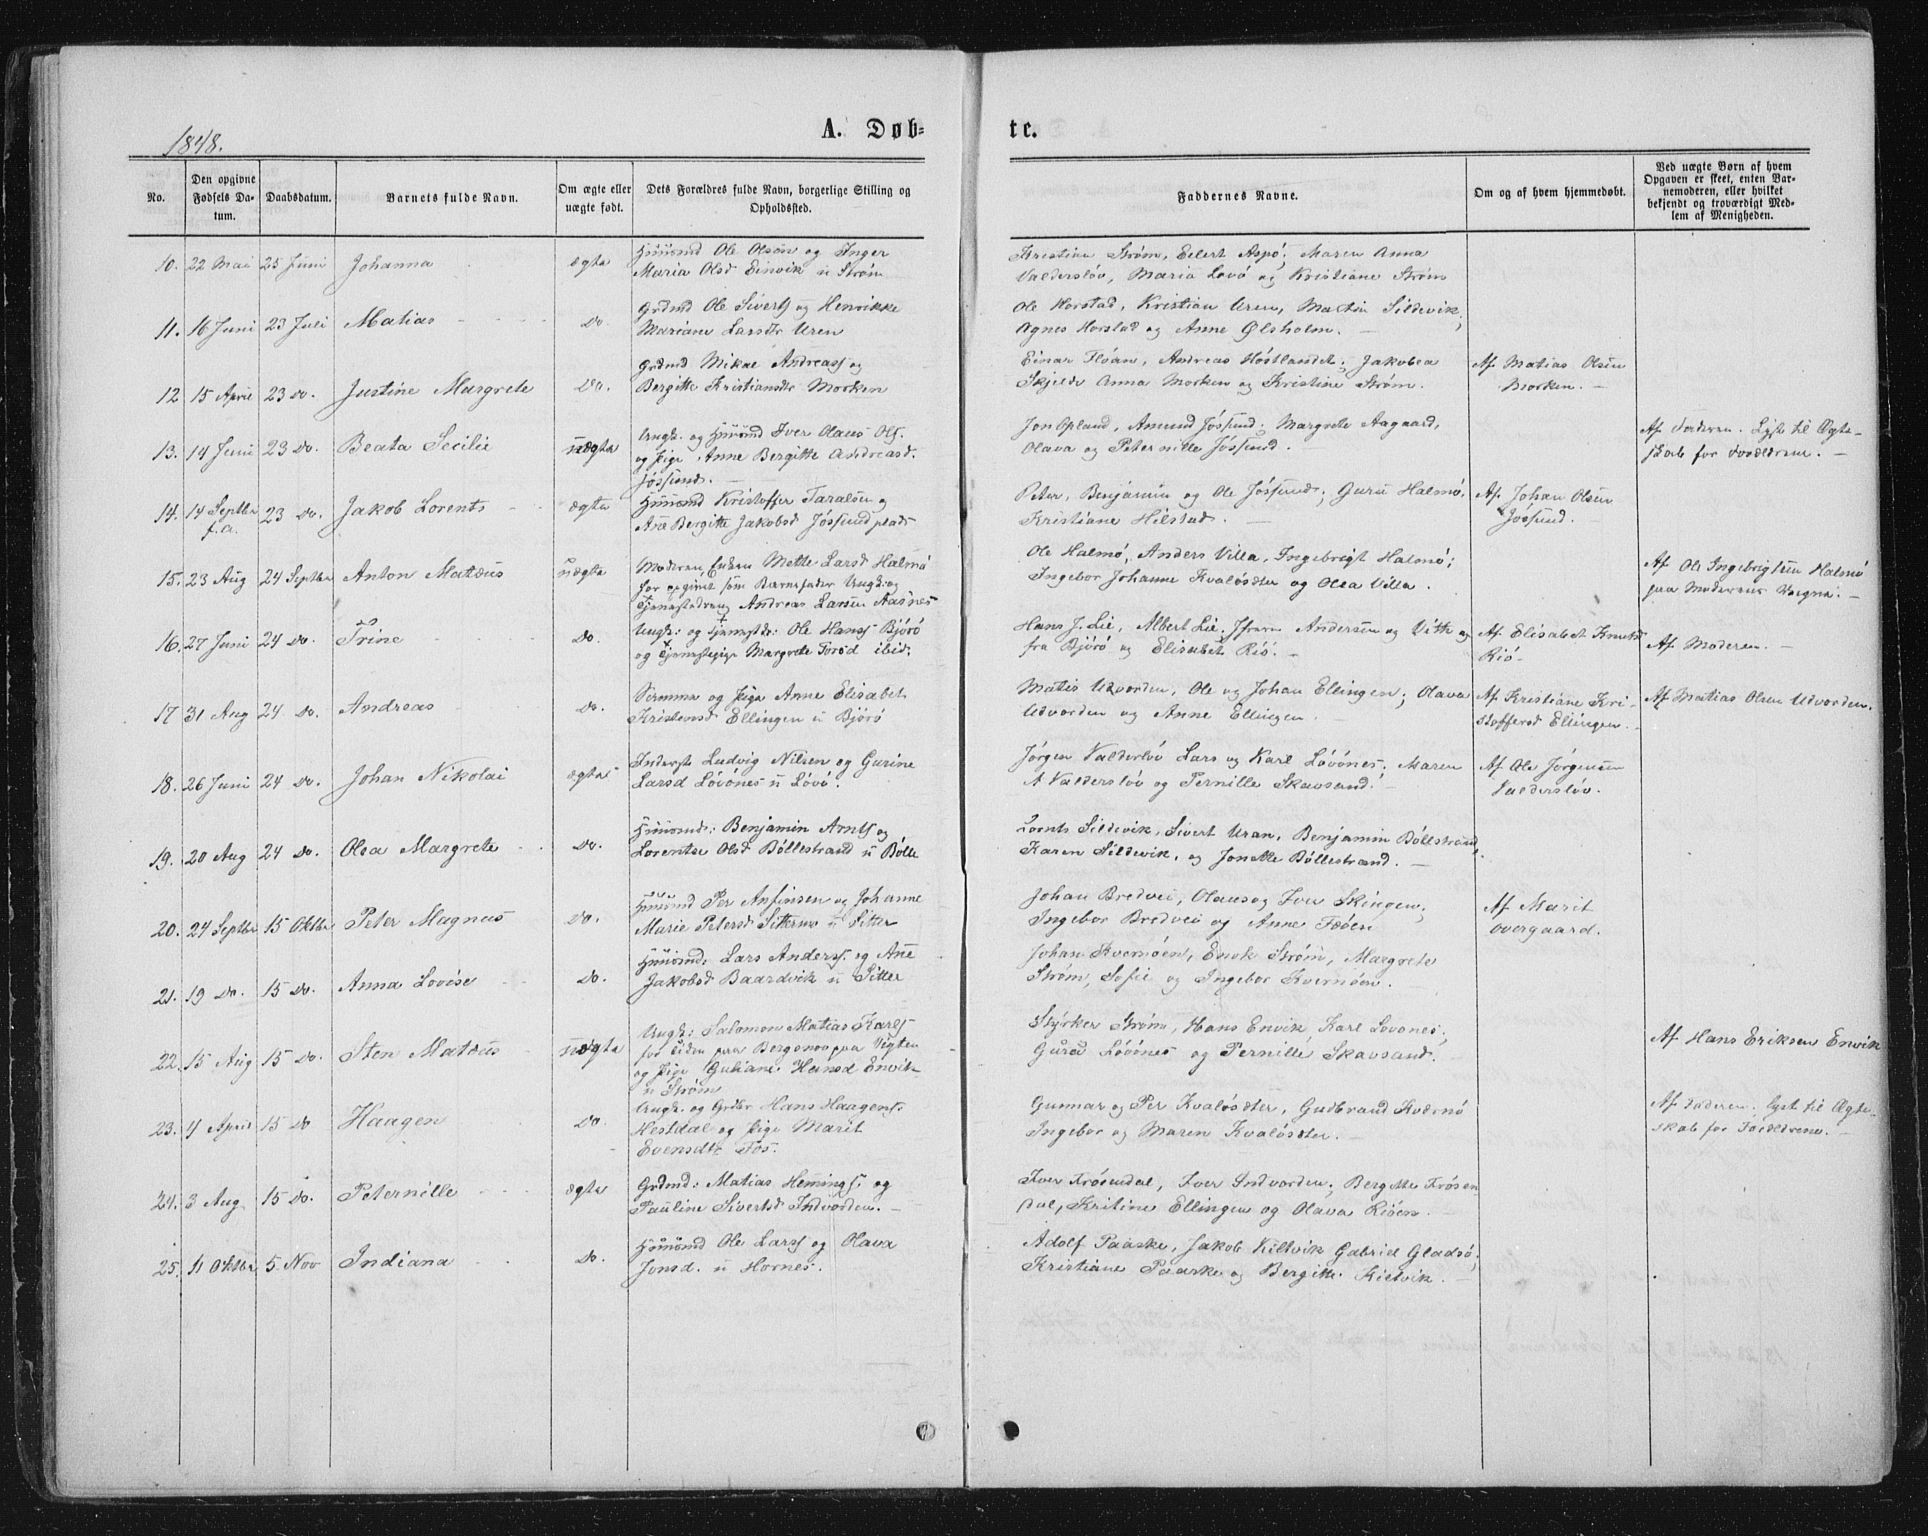 1848.
A. Døb-
te.
No.
Den opgivne
Fødsels Da-
tum.
Daabsdatum.
Barnets fulde Navn.
Om ægte eller
uægte født.
Dets Forældres fulde Navn, borgerlige Stilling og
Opholdssted.
Faddernes Navne.
Om og af hvem hjemmedøbt.
Ved uægte Børn af hvem
Opgaven er skeet, enten Bar-
nemoderen, eller hvilket
bekjendt og troværdigt Med-
lem af Menigheden.
10. 22 Mai 25 Juni Johanna ægte
Huusmd Ole Olsen og Inger
Maria Olsd Einvik u Strøm
Kristian Strøm, Eilert Aspö; Maren Anna
Valdersløv, Maria Lovö og Kristiane Strøm
11. 16 Juni 23 Juli Matias Do
Grdmd Ole Siverts og Henrikke
Mariane Larsdtr Uren
Ole Horstad, Kristian Uren, Matin Sildevik,
Agnes Horstad og Anne Ølsholm.
12 15 April 23 Do. Justine Margrete Do.
Grdmd Mikal Andreass og
Bergitte Kristiansdtr Morken
Einar Floan, Andreas Höstlandet; Jakobea
Skjelde Anna Morken og Kristine Strøm.
Af Matias Olsen
Morken.
13. 14 Juni 23 Do. Beata Secilie uægte
Ungk. og Huusmd Iver Olaus Ols.
og Pige Anne Bergitte Andreasd.
Jössund.
Jon Opland, Amund Jössund; Margrete Aagaard,
Olava og Peternille Jössund.
Af Faderen. Lyst til Ægte-
skab for Forældrene.
14. 14 Septbr f.a. 23 Do. Jakob Lorents ægte
Huusmd Kristoffer Taralsen og
Ane Bergitte Jakobsd Jössund plads
Peter, Benjamin og Ole Jössund; Guru Halmö,
Kristiane Hilstad.
Af Johan Olsen
Jössund.
15. 23 Aug 24 Septbr Anton Matæus uægte
Moderen, Enken Mette Larsd Halmö
har opgivet som Barnefader Ungk. og
Tjenestedreng Andreas Larsen Aasnes
Ole Halmö, Anders Villa, Ingebrigt Halmö;
Ingebor Johanne Kvalösæter og Olea Villa.
Af Ole Ingebrigtsen Halmö
paa Moderens Vegne.
16. 27 Juni 24 Do. Trine Do.
Ungk: og Tjenestedr: Ole Hanss Björö
og Tjenestepige Margrete Torsd ibid.
Hans J. Lie, Albert Lie, Andersen og Vitte
fra Björö og Elisabet Riö.
Af Elisabet Knutsd
Riö.
Af Moderen.
17 31 Aug 24 Do. Andreas Do.
Sømma og Pige Anne Elisabet
Kristensd Ellingen u Björö
Matis Udvorden, Ole og Johan Ellingen; Olava
Udvorden og Anne Ellingen.
Af Kristiane Kri-
stoffersd Ellingen.
Af Matias Olsen Udvorden.
18. 26 Juni 24 Do. Johan Nikolai ægte
Inderst Ludvig Nilsen og Gurine
Larsd Lövönes u Lövö.
Jörgen Valderslöv Lars og Karl Lövönes; Maren
A Valderslöv og Pernille Skavsand.
Af Ole Jörgensen
Valderslöv.
19. 20 Aug 24 Do. Olea Margrete Do.
Huusmd: Benjamin Arnts og
Lorentse Olsd Böllestrand u Bölle
Lornts Sildevik, Sivert Uran, Benjamin Böllestrand,
Karen Sildevik, og Jonette Böllestrand.
20. 24 Septbr 15 Oktbr Peter Magnus Do.
Huusmd Per Anfinsen og Johanne
Marie Petersd Sittermo u Sitter
Johan Bredvei, Olaus og Iver Skingen,
Ingebor Bredvei og Anne Fööen
Af Marit
Overgaard.
21. 19 Do. 15 Do. Anna Lovise Do.
Huusmd: Lars Anderss. og Ane
Jakobsd Baardvik u Sitter
Johan Kvernöen, Enok Strøm, Margrete
Strøm, Sofie og Ingebor Kvernöen.
22. 15 Aug 15 Do. Sten Matæus uægte
Ungk: Salomon Matias Karls
for tiden paa Bergsnov paa Vigten
og Pige Guliane Hansd Envik
u Strøm
Styrker Strøm, Hans Envik, Karl Lovönes,
Gurad Lövönes og Pernille Skavsand.
Af Hans Eriksen Envik
23. 4 April 15 Do Haagen Do
Ungk. og Grdbr Hans Haagens.
Hestdal og Pige Marit
Evensdtr Fos.
Gunnar og Per Kvalösæter, Gudbrand Kværnö
Ingebor og Maren Kvalösæter.
Af Faderen. lyst til Ægte-
skab for Forældrene.
24. 3 Aug 15 Do. Peternille ægte
Grdmd: Matias Hemings. og
Pauline Sivertsd Indvorden.
Iver Frösendal, Iver Indvorden; Bergitte Frösen
dal, Kritine Ellingen og Olava Riöen.
25. 11 Oktbr 5 Nov Indiana Do.
Huusmd Ole Larss og Olava
Jonsd. u Hornes.
Adolf Paaske, Jakob Killvik Gabriel Gladsö,
Kristiane Paaske og Bergitte Kielvik.